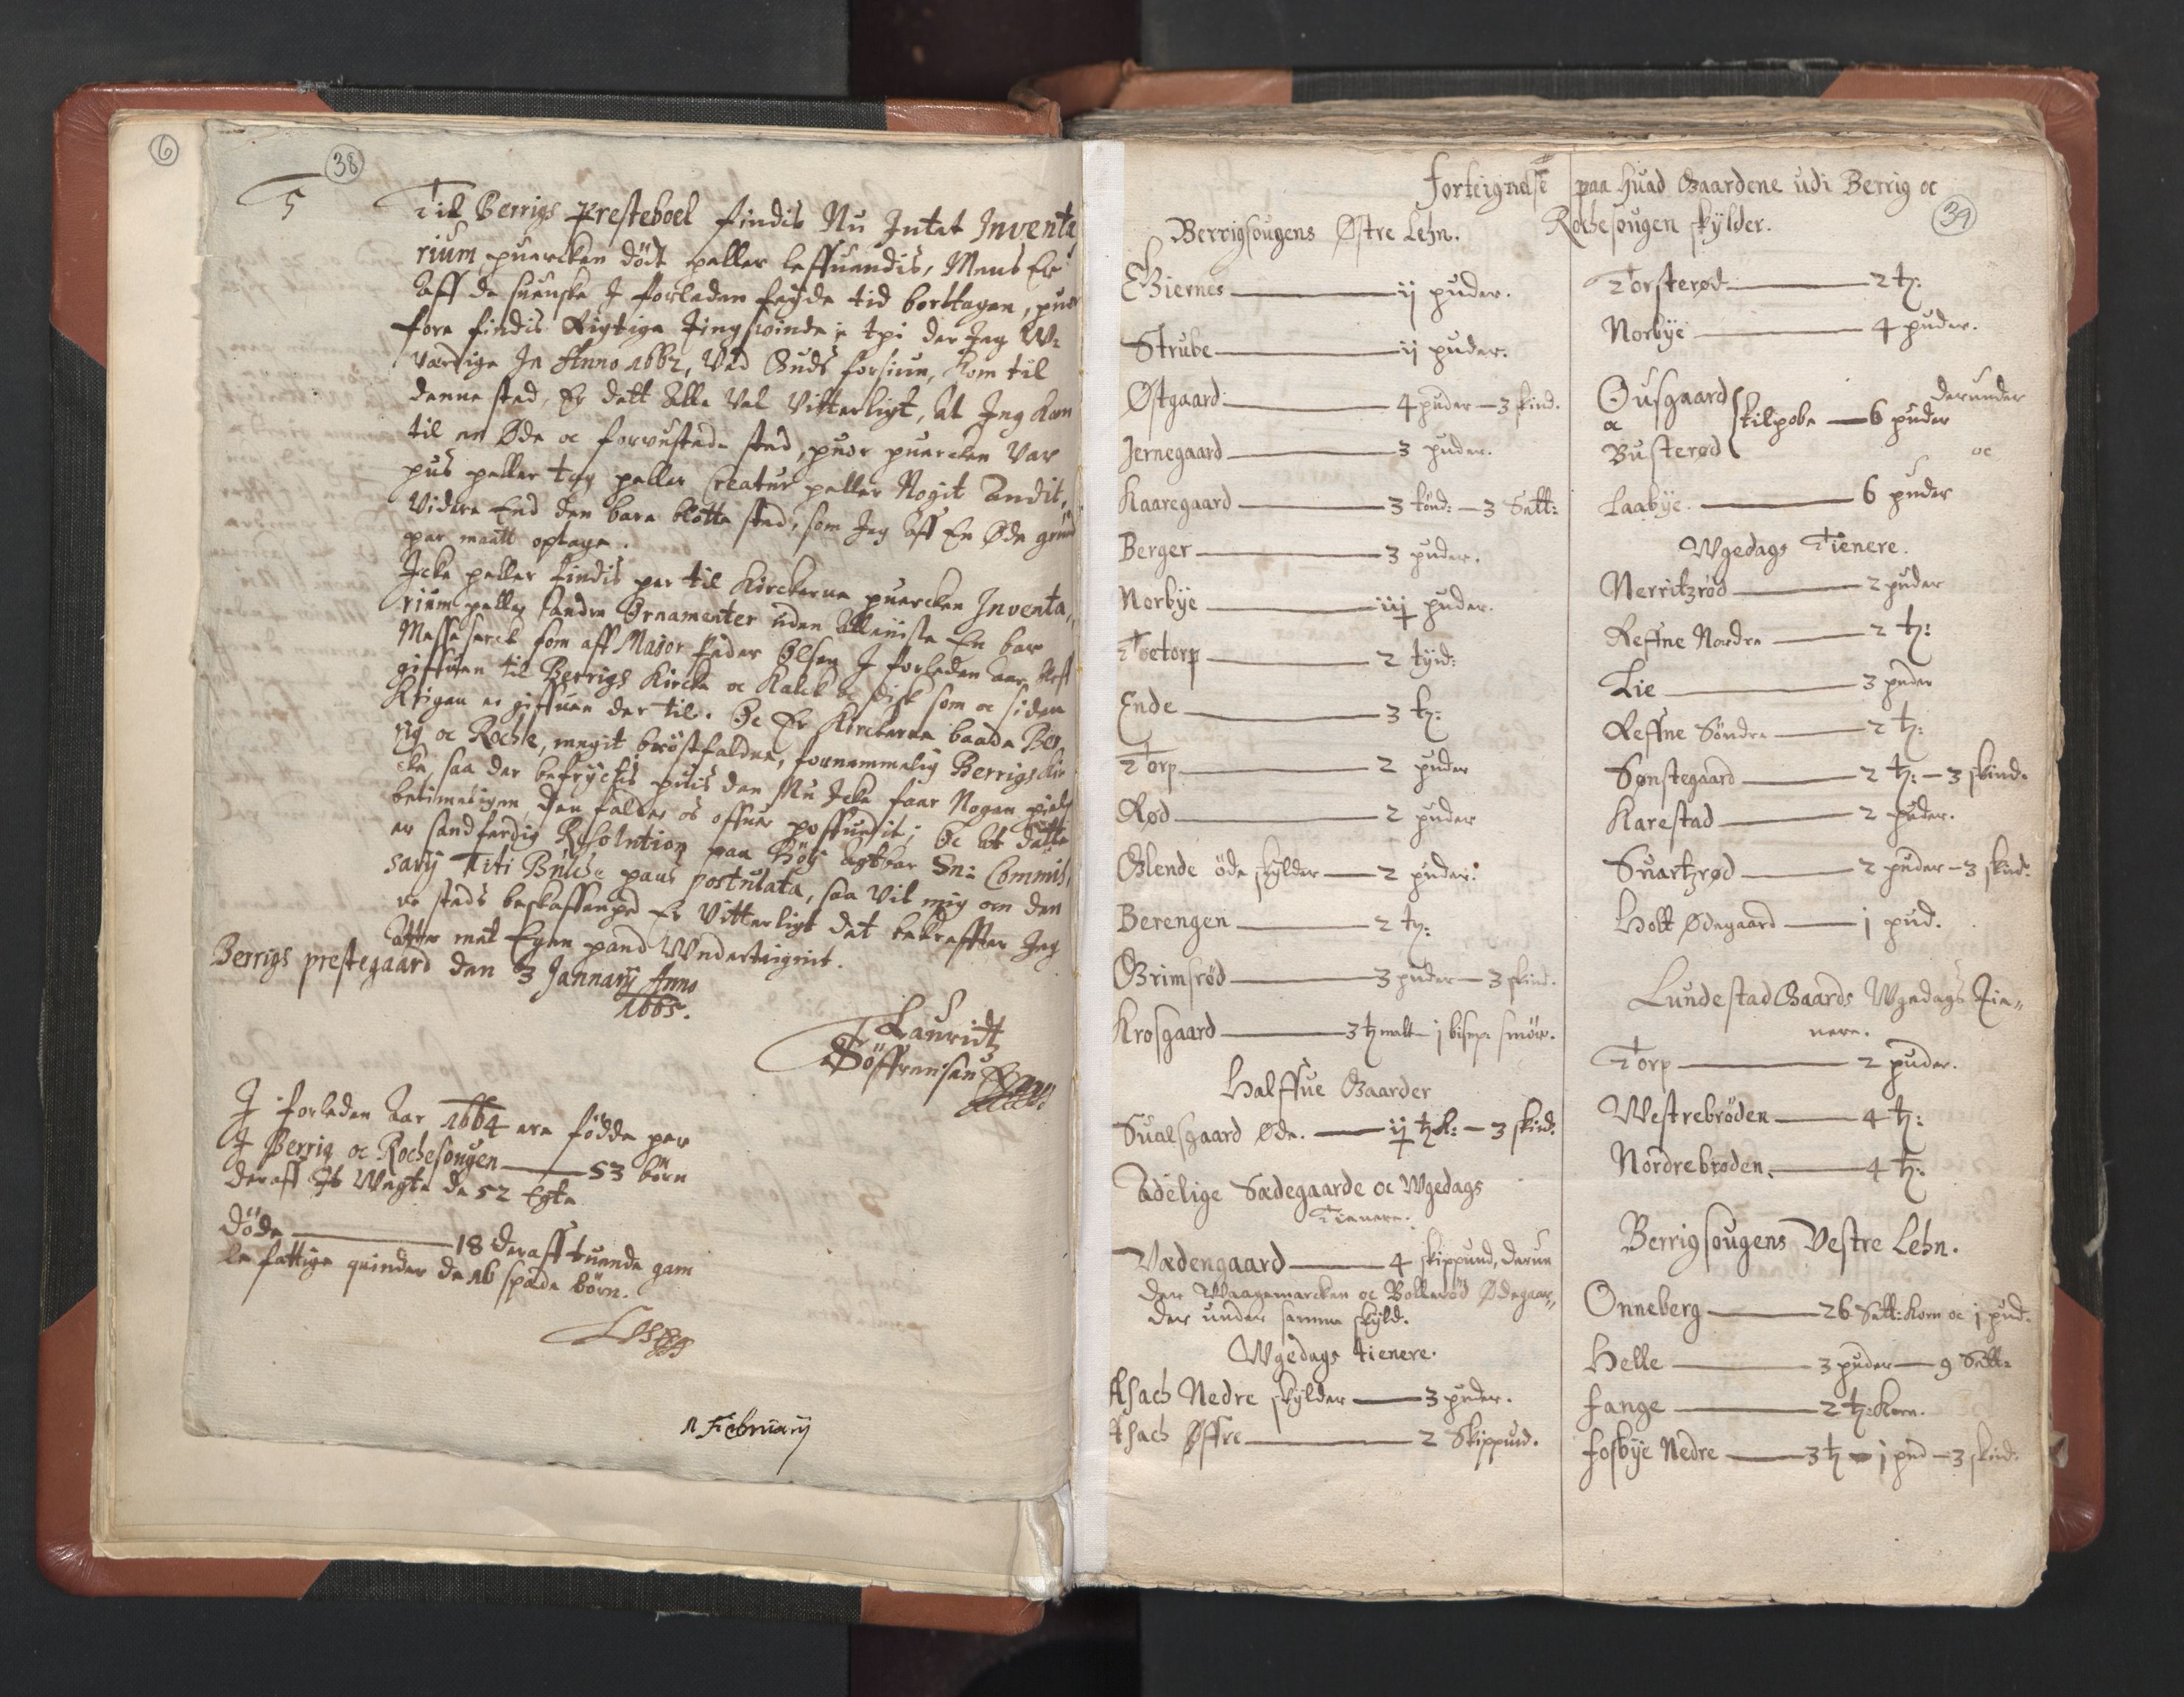 6
38
5
Til Berrigs Presteboel findis Nu Intet Inventa
rium huercken dödt heller leffuendis, Mens Er
Aff de suenske I forleden feyde tid borttagen, huor
fore findis Rigtige Tingswinde: thi der Jeg W-
værdige In Anno 1662, Ved Guds forsiun, Kom til
denne sted, Er dett Alle Vel Vitterligt, At Jeg Kom
til en Øde oc forvustede sted, huor huercken Var
hus heller tag heller Creatur heller Nogit Andit,
Videre End den bare blotte sted, som Jeg Aff En Øde grund
har maatt optage.
Icke heller findis her til Kirckerne huercken Inventa,,
rium heller Andre Ornamenter uden Alleniste En bar
Messeserck som aff Major Peder Olsen I forleden Aar
giffuen til Berrigs Kircke oc Kalck oc Disk som oc siden
Krigen er giffuen der til. Oc Er Kirckerne baade Ber
rig oc Rochе, megit bröstfalden, fornemmelig Berrigs Kir
cke, saa der befrychtis huis den Nu Icke faar Nogen hielp
betimeligen, den falder os offuer hoffuedit; Oc At Dette
er sandferdig Resolution paa Höy Agtbar Sn: Commis,
sarij Titi Bülse hans Postulata, saa Vit mig om den
ne steds beskaffenhed Er Vitterligt det bekreffter Jeg
Atter met Egen hand Vnderteignit.
Berrigs prestegaard den 3 Januarij Anno
1665.
Lauridtz
Söffrensen
I forleden Aar 1664 ere födde her
I Berrig oc Rochesougen — 53 börn
deraff It Wegte de 52 Egte
Döde — 18 deraff tuende gam
le fattige quinder de 16 spede börn.
11 February
forteignelse paa huad Gaardene udi Berrig oc
Rochesougen skylder.
39
Berrigsougens Østre Lehn.
Biernes — ij huder.
Strube — ij huder.
Østgaard — 4 huder — 3 skind.
Jernegaard — 3 huder.
Kaaregaard — 3 tönd: — 3 Sett:
Berger — 3 huder.
Norbÿe — iij huder.
Toetorp — 2 tÿnd:
Ende — 3 tz:
Torp — 2 huder
Rød — 2 huder
Glende öde skylder — 2 huder.
Berengen — 2 tz:
Grimsröd — 3 huder — 3 skind.
Krosgaard — 3 tz malt — j bismp. smör.
Halffue Gaarder
Sualsgaard Øde. — ij tz K: — 3 skind.
Adelige Sædegaarde oc Wgedags
Tienere.
Vædengaard — 4 skippund, derun
der Waagemarcken oc Bolleröd Ødegaar,,
der under samme skyld.
Wgedags tienere.
Asach Nedre skylder — 3 huder.
Asach Øffre — 2 Skippund.
Torsterød — 2 tz:
Norbÿe — 4 huder.
Ousgaard derunder
oc skilpobe — 6 huder
Busterød oc
Laabÿe. — 6 huder
Wgedags Tienere.
Nerritzröd — 2 huder
Reffne Nordre — 2 tz:
Lie — 3 huder
Reffne Söndre — 2 tz:
Sønstegaard — 2 tz: — 3 skind.
Karestad — 2 huder.
Suartzrød — 2 huder — 3 skind.
Holt Ødegaard — j hud.
Lundestad Gaards Wgedags Tie,,
nere.
Torp — 2 huder.
Westrebröden — 4 tz:
Nordrebroden. — 4 tz:
Berrigsougens Vestre Lehn.
Onneberg — 26 Sett: Korn oc j hud.
Helle — 3 huder — 9 Sett:
Fange — 2 tz: Korn.
Fosbÿe Nedre — 3 tz — j hud — 3 skind.